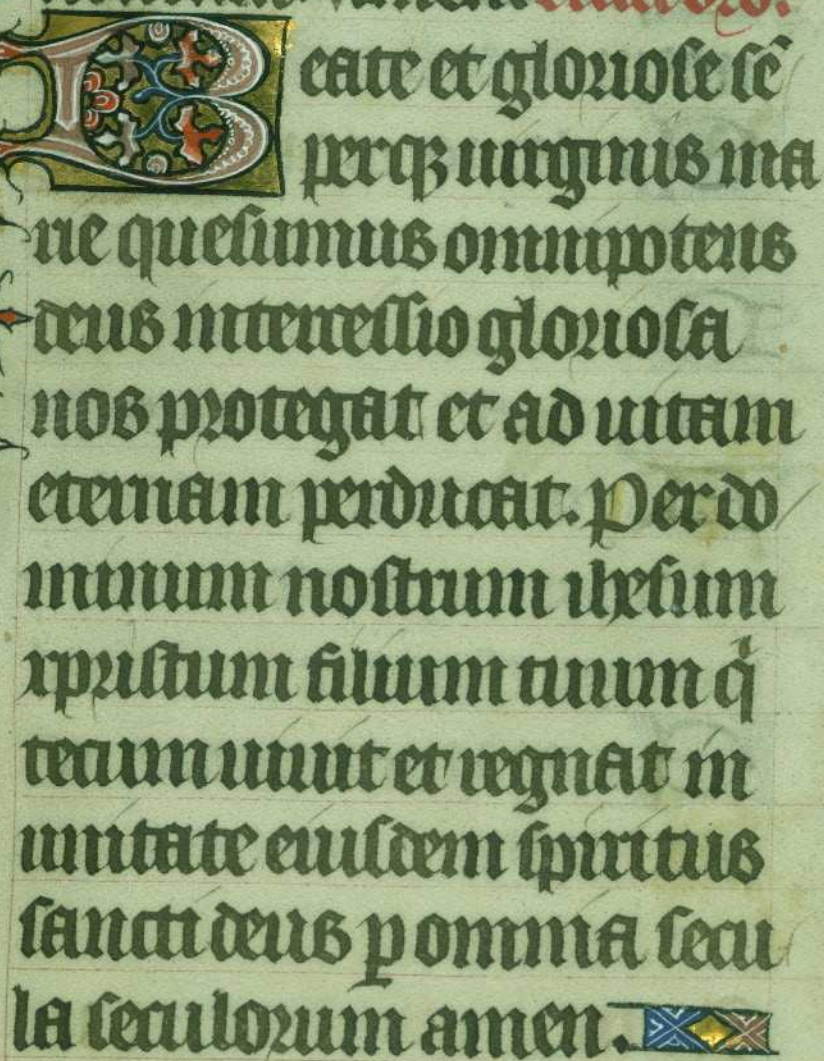 Beate et gloriose sē
perqꝫ uirginis ma
rie quesumus omnipotens
deus intercessio gloriosa
nos protegat et ad uitam
eternam perducat. Per do
minum nostrum ihesum
xpristum filium tuum q̇
tecum uiuit et regnat in
unitate eiusdem spiritus
sancti deus ꝑ omnia secu
la seculorum amen.